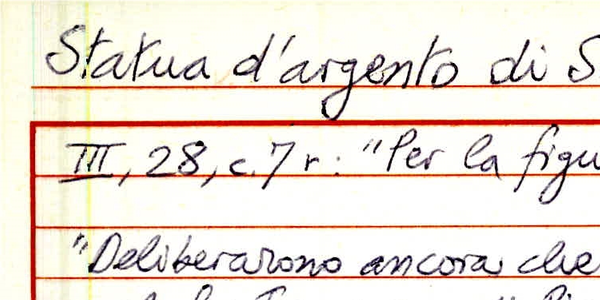 Statua d'argento di S
III, 28, c. 7 r: "Per la figu
"Deliberarono ancora che